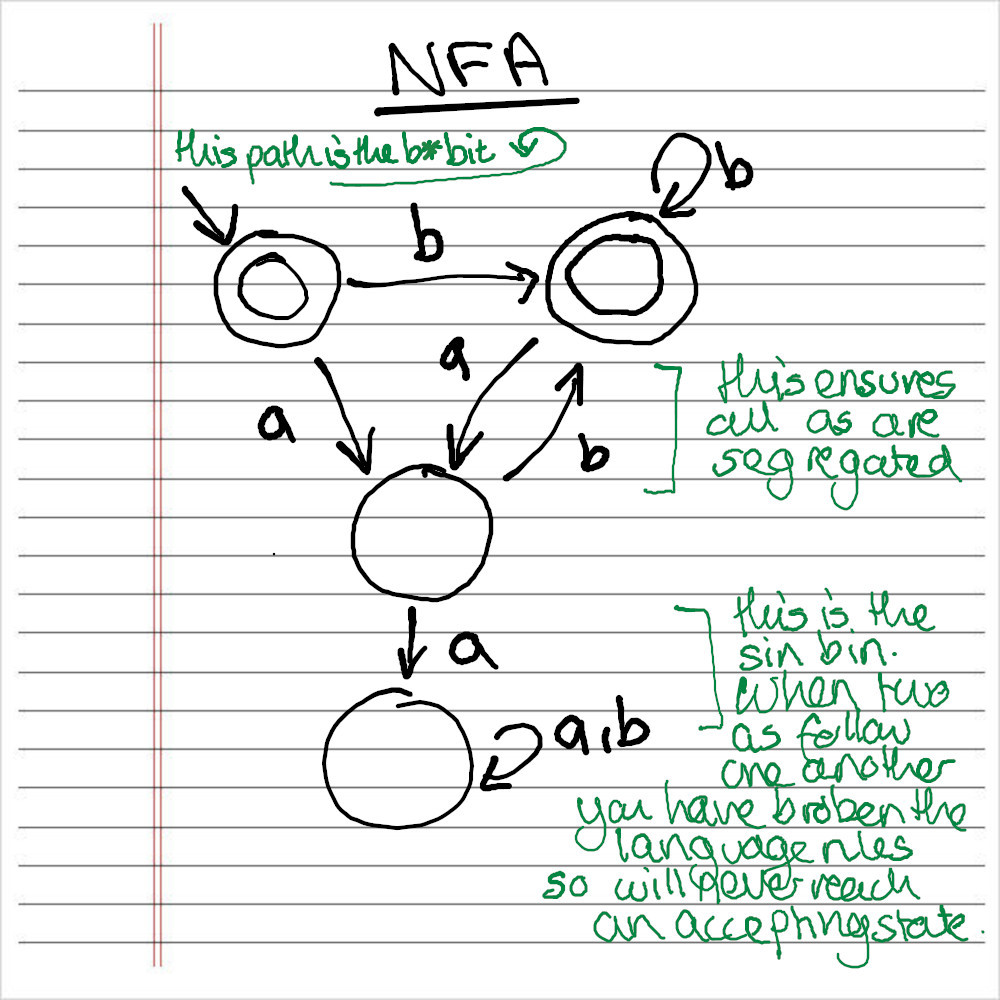 NFA
this path is the b* bit
b
b
a
a
b
this ensures
all as are
segregated
a
this is the
sin bin.
when two
as follow
one another
a,b
you have broken the
language rules
so will never reach
an accepting state.